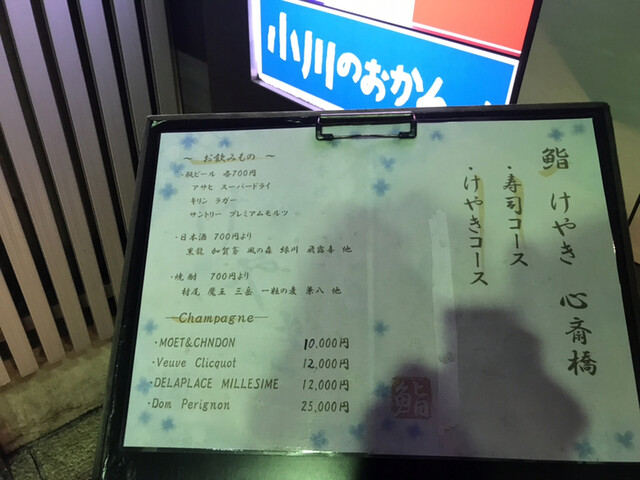 小川のおかん
～ お飲みもの ～
・瓶ビール 各700円
アサヒ スーパードライ
キリン ラガー
サントリー プレミアムモルツ
・日本酒 700円より
黒龍 加賀鳶 風の森 緑川 飛露喜 他
・焼酎 700円より
村尾 魔王 三岳 一粒の麦 兼八 他
―Champagne―
・MOET&CHNDON 10,000円
・Veuve Clicquot 12,000円
・DELAPLACE MILLESIME 12,000円
・Dom Perignon 25,000円
鮨 けやき 心斎橋
・寿司コース
・けやきコース
鮨